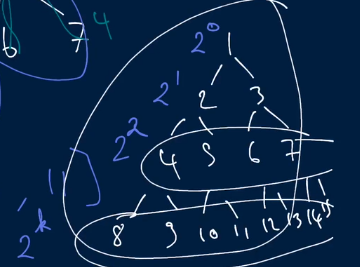 6 7 4
2^0 1
2^1 2 3
2^2 4 5 6 7
2^k 8 9 10 11 12 13 14 15